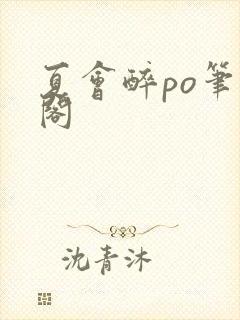 夏會醉po筆
閣
沈青沐